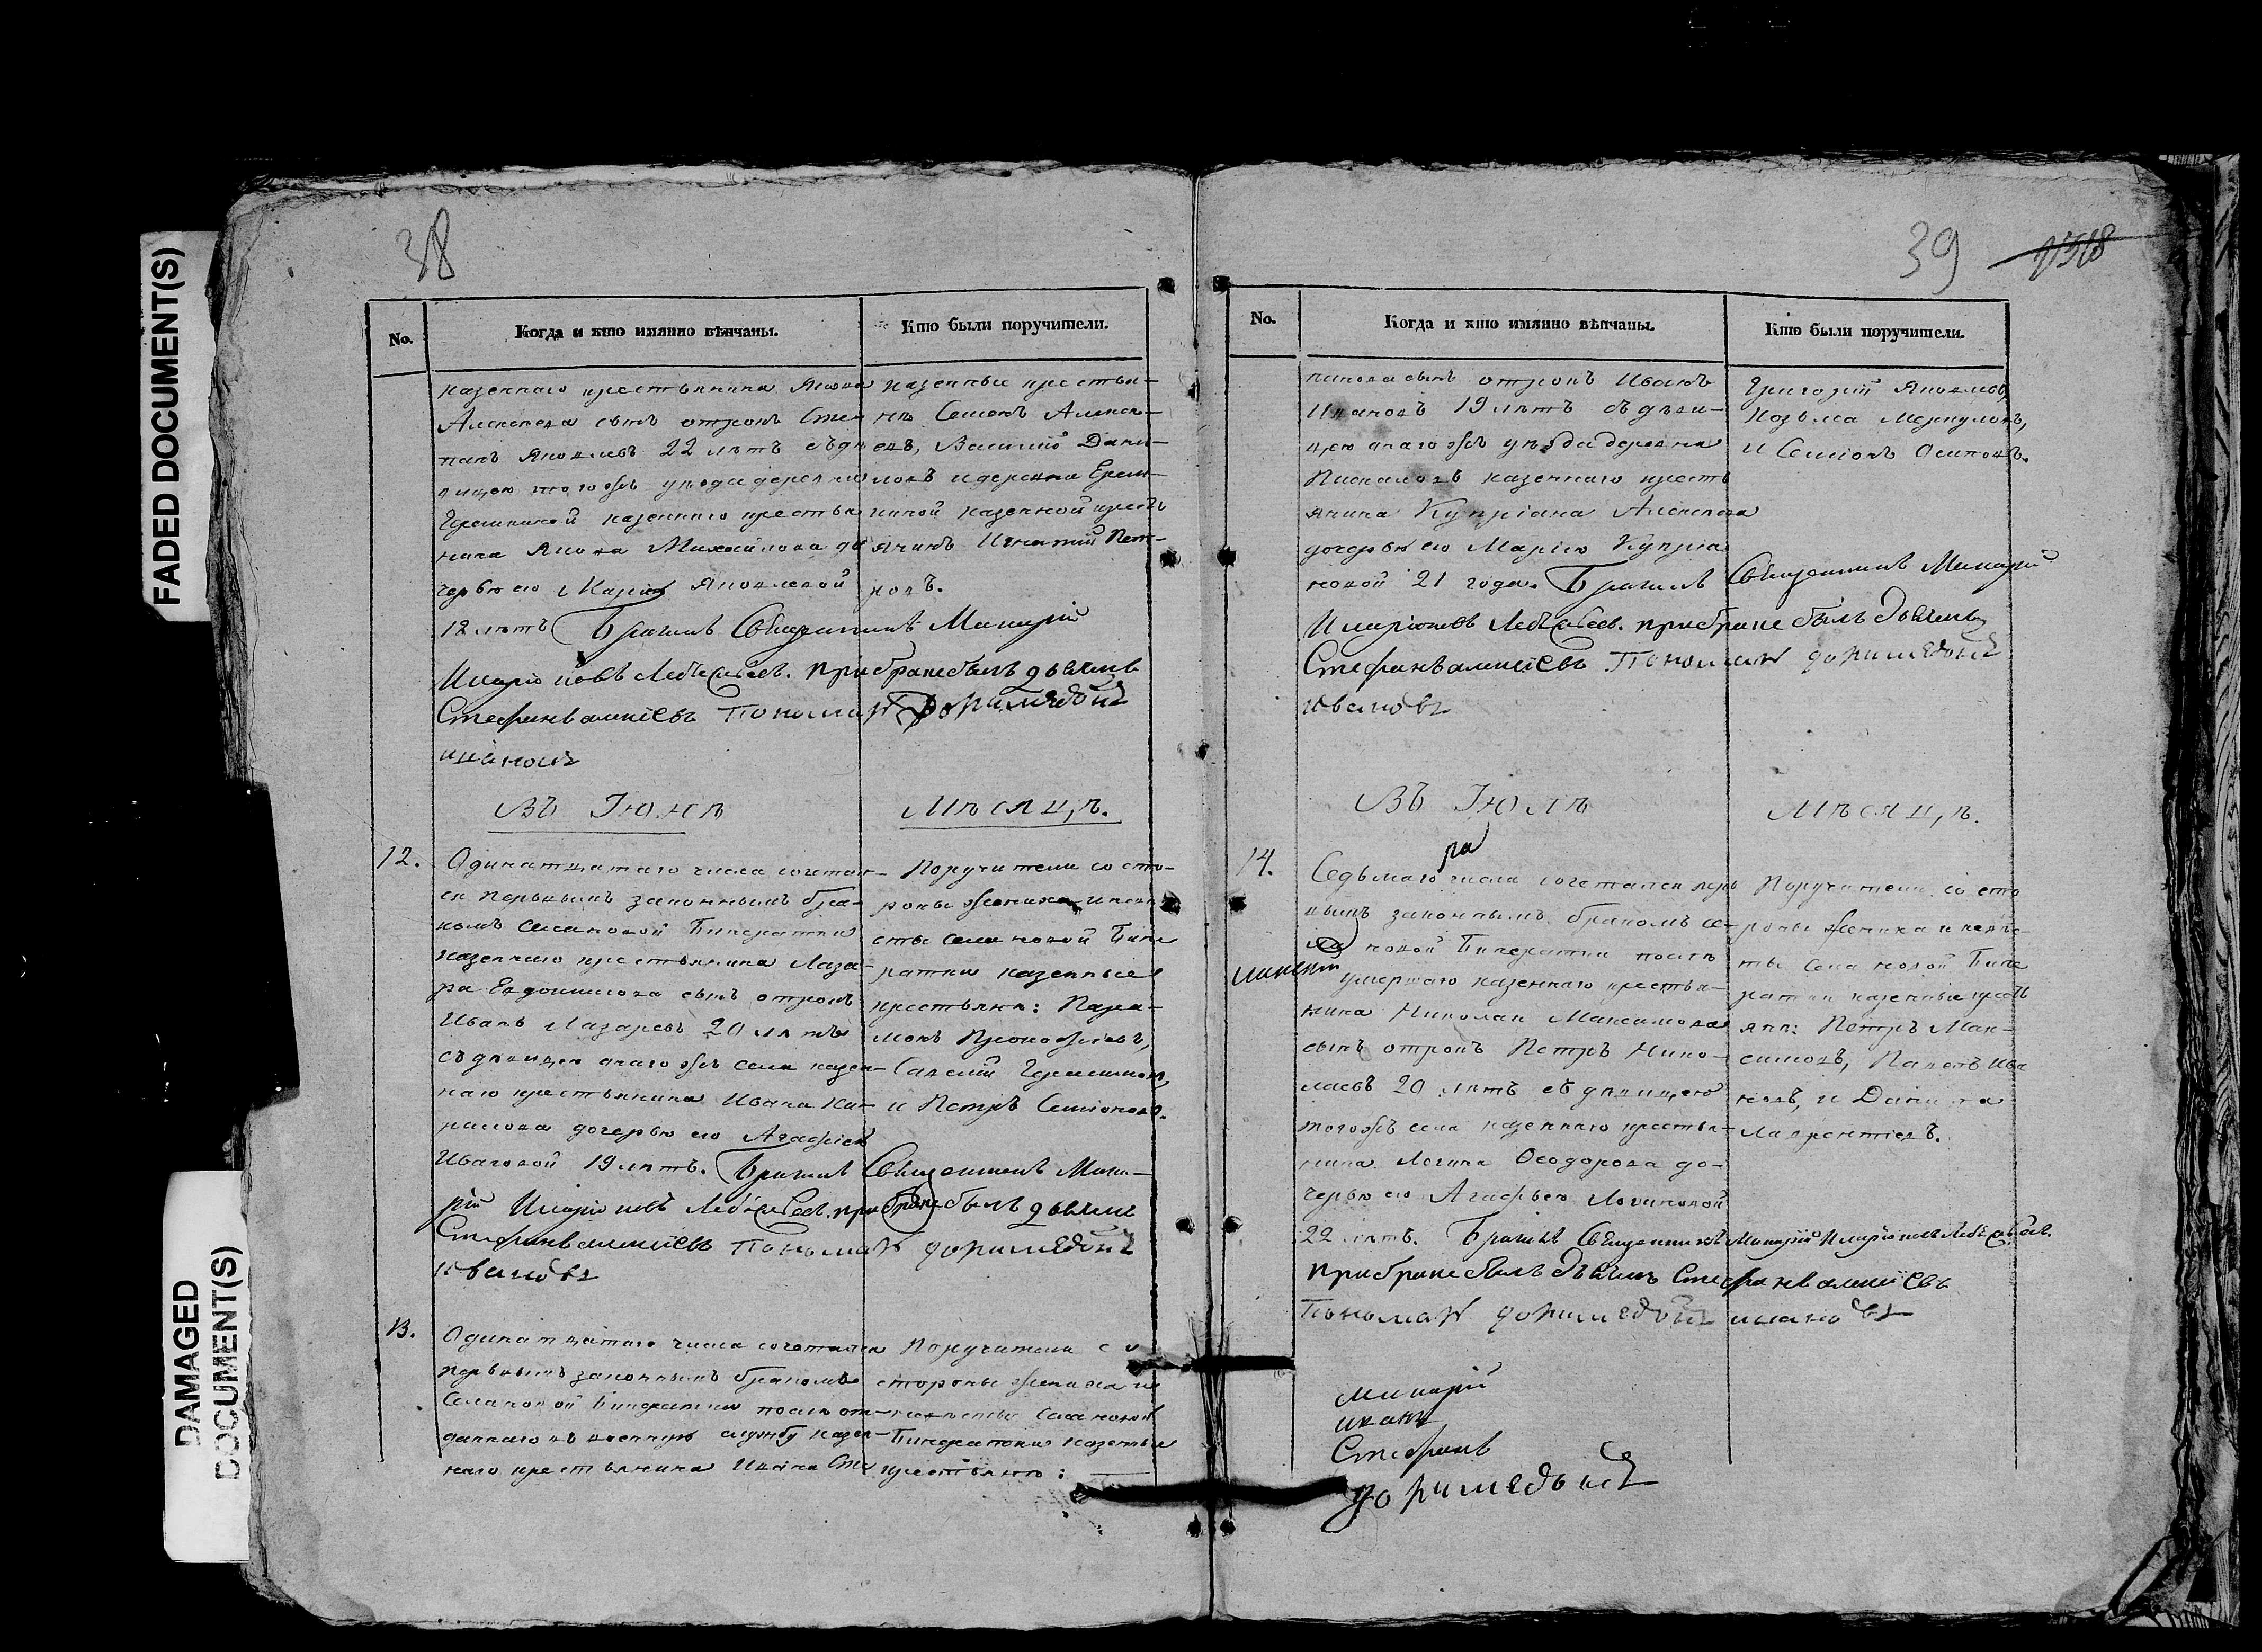 FADED DOCUMENT(S)
DAMAGED
DOCUMENT(S)
38
No.
Когда и кто имянно вѣнчаны.
Кто были поручители.
казеннаго крестьянина Якова
Алексеева сынъ отрокъ Сте
панъ Яковлевъ 22 лѣтъ съ дѣ
вицею тогожъ уѣзда деревни
казеннаго крестья
нина Якова Михайлова до
черью его Яковлевой
18 лѣтъ Бракъ Священникъ Макарій
Иларіоновъ при бракѣ былъ дьячекъ
Стефанъ Алексіевъ Пономарь Доримедонтъ
Ивановъ
казенные крестья-
не Семенъ Алексе-
евъ, Василій Дани-
ловъ и деревни
казенной кресть
янинъ Игнатій Пет-
ровъ.
Въ Іюнѣ
Мѣсяцѣ.
12.
Одинатцатаго числа сочетал-
ся первымъ законнымъ бра-
комъ села новой Бинаратки
казеннаго крестьянина Лаза-
ра Евдокимова сынъ отрокъ
Иванъ Лазаревъ 20 лѣтъ
съ дѣвицею онаго жъ села казен-
наго крестьянина Ивана
дочерью его
Ивановой 19 лѣтъ. Священникъ Мака-
рій Иларіоновъ при бракѣ былъ дьячекъ
Стефанъ Алексіевъ Пономарь Доримедонтъ
Ивановъ
Поручители со сто-
роны жениха и невѣ
сты села новой Бина
ратки казенные
крестьяне: Пара-
монъ Прокофьевъ,
Савелій Герасимовъ,
и Петръ Семіоновъ.
13.
Одинатцатаго числа сочетался
первымъ законнымъ бракомъ
Села новой Бинаратки послѣ от-
даннаго въ военную службу казен-
наго крестьянина Ивана Сте
Поручители со
стороны жениха и
невѣсты села новой
Бинаратки казенные
крестьяне:
39
No.
Когда и кто имянно вѣнчаны.
Кто были поручители.
панова сынъ отрокъ Иванъ
Ивановъ 19 лѣтъ съ дѣви-
цею онаго жъ уѣзда деревни
казеннаго кресть
янина Купріана Алексеева
дочерью его Марією Купріа
новой 21 года. Священникъ Макарій
Иларіоновъ при бракѣ былъ дьячекъ
Стефанъ Алексіевъ Пономарь Доримедонтъ
Ивановъ
Григорій Яковлевъ,
Козьма Меркуловъ,
и Семіонъ Осиповъ.
Въ Іюлѣ
Мѣсяцѣ.
14.
Седьмаго числа сочетался пер
вымъ законнымъ бракомъ се-
ла новой Бинаратки послѣ
умершаго казеннаго крестья-
нина Николая Максимова
сынъ отрокъ Петръ Нико-
лаевъ 20 лѣтъ съ дѣвицею
тогожъ села казеннаго крестья-
нина Логина Ѳеодорова до-
черью его Агафьею Логиновой
22 лѣтъ. Священникъ Макарій Иларіоновъ
при бракѣ былъ дьячекъ Стефанъ Алексіевъ
Пономарь Доримедонтъ Ивановъ
Поручители со сто
роны жениха и невѣс-
ты села новой Бина
ратки казенные кресть
яне: Петръ Мак-
симовъ, Павелъ Ива
новъ, и Данила
Лаврентіевъ.
Макарій
Иванъ
Стефанъ
Доримедонтъ